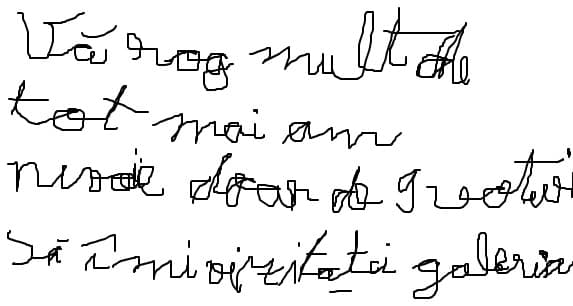 Vă rog mult de
tot mai am
nevoie doar de 9 voturi
să îmi vizitați galeria